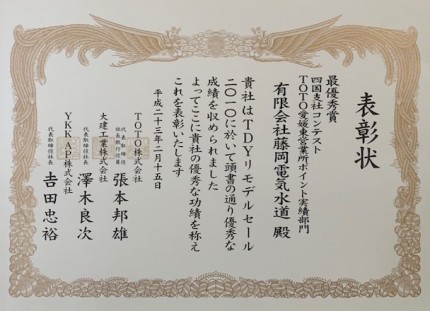 表彰状
最優秀賞
四国支社コンテスト
TOTO愛媛東営業所ポイント実績部門
有限会社藤岡電気水道 殿
貴社はTDYリモデルセール
二〇一〇に於いて頭書の通り優秀な
成績を収められました
よってここに貴社の優秀な功績を称え
これを表彰いたします
平成二十三年二月十五日
TOTO株式会社
代表取締役
社長執行役員
張本邦雄
大建工業株式会社
代表取締役社長
澤木良次
YKK AP株式会社
代表取締役社長
吉田忠裕